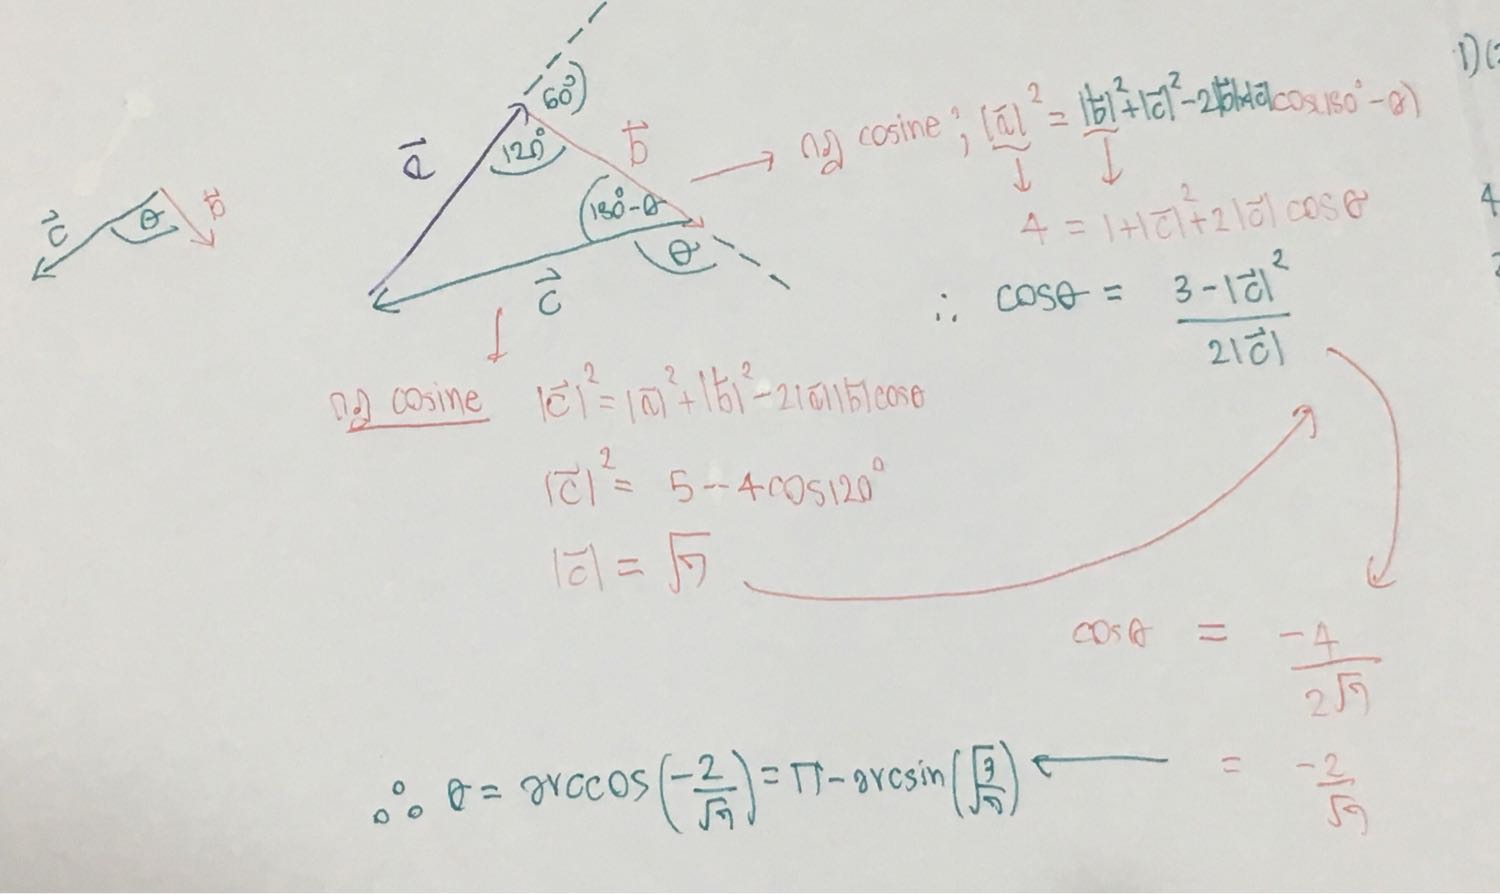 60°
120°
a⃗
b⃗
กฎ cosine ; |a⃗|² = |b⃗|²+|c⃗|²-2|b⃗||c⃗|cos(180°-θ)
1)(
180°-θ
θ
c⃗
c⃗
θ
b⃗
4 = 1+|c⃗|²+2|c⃗|cosθ
4
∴ cosθ = 3-|c⃗|² / 2|c⃗|
กฎ cosine |c⃗|² = |a⃗|²+|b⃗|²-2|a⃗||b⃗|cosθ
|c⃗|² = 5-4cos120°
|c⃗| = √7
cosθ = -4/2√7
= -2/√7
∴ θ = arccos(-2/√7) = π-arcsin(√3/√7)